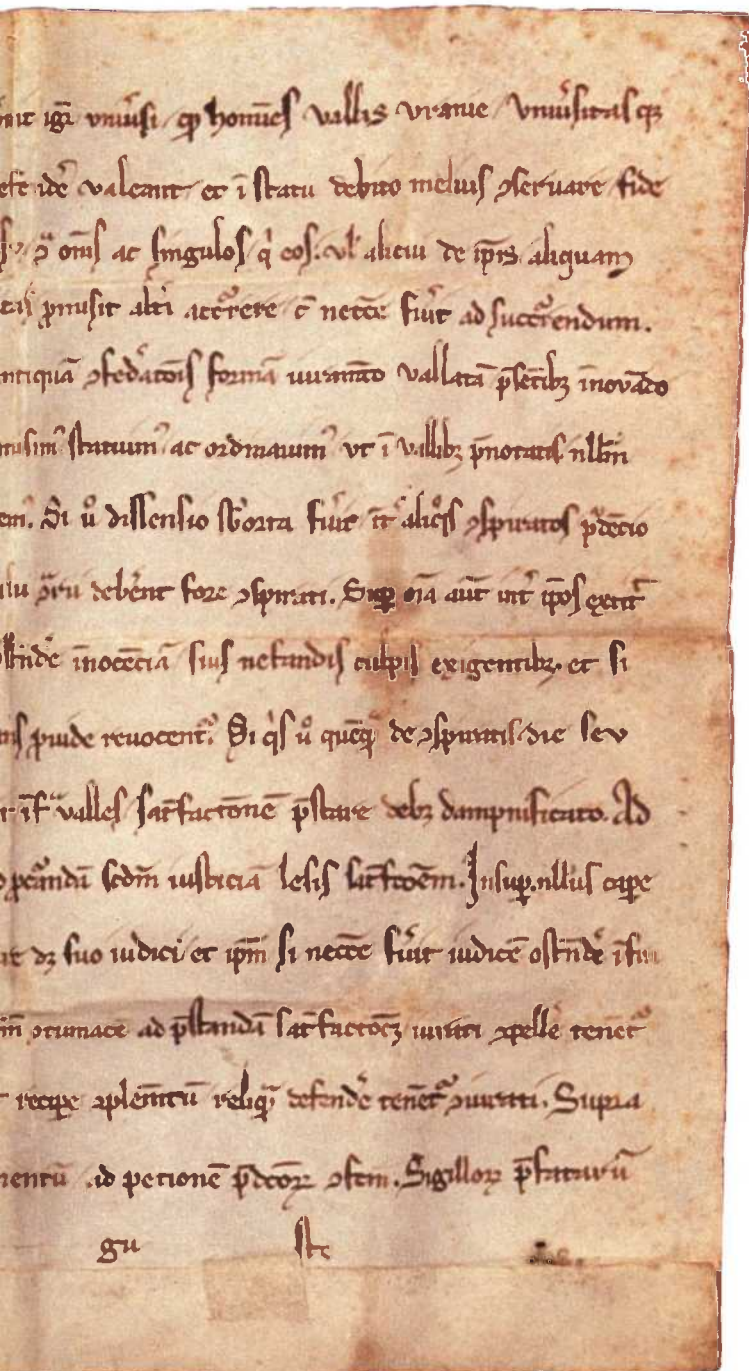 igr̄ vniũsi qp homīes vallis vranie vniũsitasqꝫ
valeant et ī statu debito melius ꝯseruare fide
ꝯͣ om̄s ac singulos q̇ eos vł alicui de ip̄is aliquam
p̄misit alt̾i accͬrere c̄ necc̄e fu̾it ad succͬrendum.
ntiquā ꝯfed̾atōis formā iuramēto vallatā p̄sētibꝫ īnovādo
misim᷒ statuim᷒ ac ordinauim᷒ vt ī vallibꝫ p̄notatis nłlm
em. Si ů dissensio sb̾orta fu̾it int̾ aliq̊s ꝯspiratos pͬdēcio
ꝯͣrii deb̾ent fore ꝯspirati. Suꝑ oīa aūt int̾ ip̄os extit̾
ostēnd̾e īnocēciā suis nefandis culpis exigentibꝫ et si
ꝓuide reuocentͬ. Si q̇s ů quēqͣ de ꝯspiratis die sev
īfͣ valles sat̾factōnē p̄stare debꝫ dampnificato. Ad
ꝓcͬandā scdm̄ iusticiā lesis sat̾fc̄oēm. Insuꝑ nłlus caꝑe
dꝫ suo iudici et ip̄m si necc̄e fu̾it iudicē ostēnd̾e īfͣ
ꝯtumacē ad p̄standā sat̾factōeꝫ iurati ꝯpelle̾ tenētͬ
reciꝑe ꝯplem̄tū reliqͥ defend̾e tenētͬ ꝯiurati. Supra
mentū ad petionē p̄dc̄oꝝ ꝯfcm. Sigilloꝝ p̄fatarū
gu ste